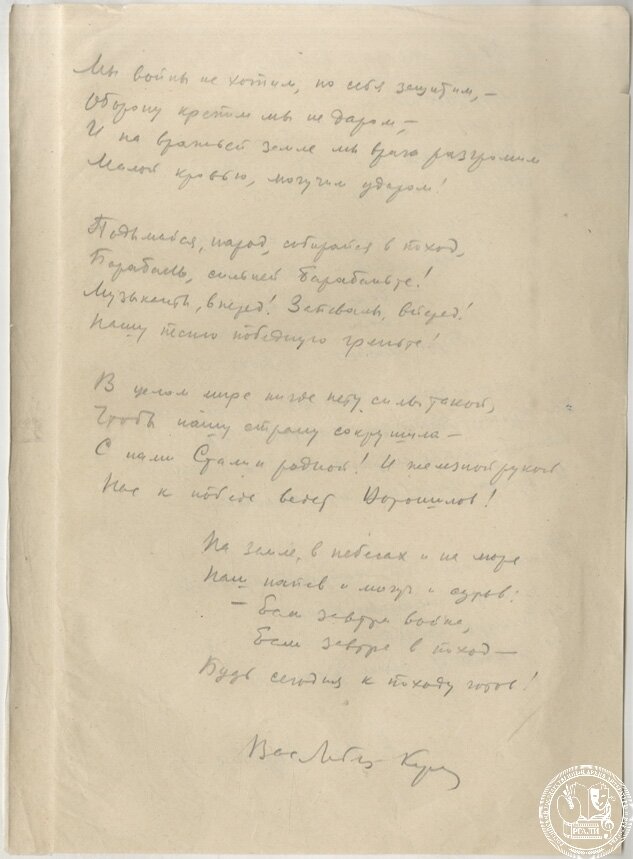 Мы войны не хотим, но себя защитим, —
Оборону крепим мы не даром, —
И на вражьей земле мы врага разгромим
Малой кровью, могучим ударом!
Подымайся, народ, собирайся в поход,
Барабаны, сильней барабаньте!
Музыканты, вперед! Запевалы, вперед!
Нашу песню победную гряньте!
В целом мире нигде нету силы такой,
Чтобы нашу страну сокрушила —
С нами Сталин родной! И железной рукой
Нас к победе ведет Ворошилов!
На земле, в небесах и на море
Наш напев и могуч и суров:
— Если завтра война,
Если завтра в поход —
Будь сегодня к походу готов!
Вас Лебедев-Кумач
РГАЛИ